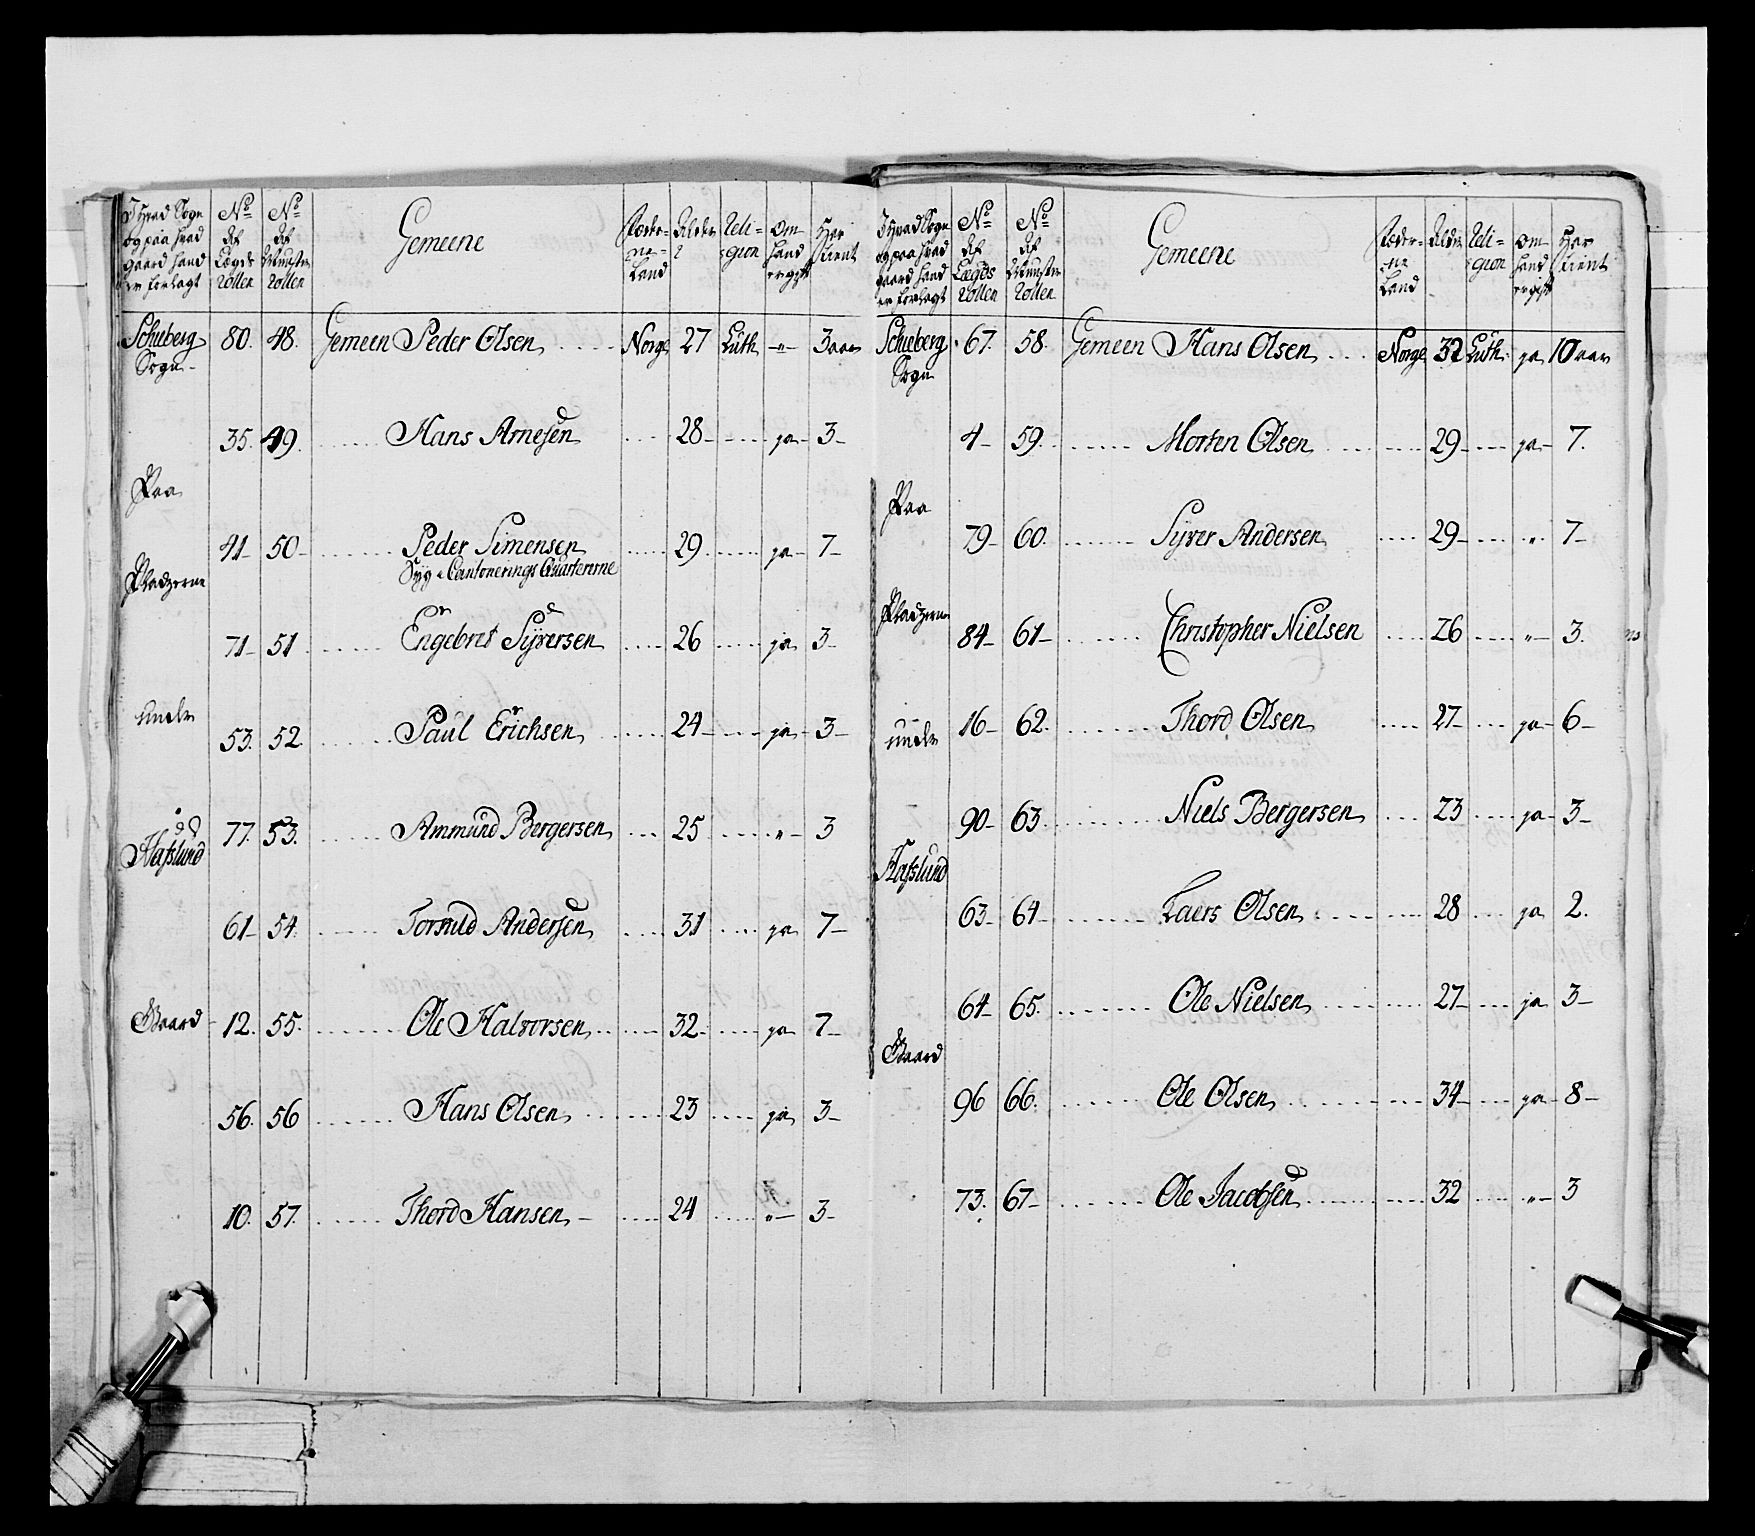 I Hvad Sogn
og paa hvad
gaard hand
er forlagt
No
af
Lægds
Rollen
No
af
Mynster
Rollen
Gemeene
Fæder-
ne-
Land
Alder
Reli-
gion
Om
hand
er gift
Har
tient
Schieberg Sogn 80. 48. Gemeen Peder Olsen Norge 27 Luth. -"- 3 aar
35. 49. Hans Arnesen 28 ja 3
Paa
41 50 Peder Simensen 29 ja 7
Syg i Cantonerings Quartererne
Pladzerne
71 51 Engebret Syversen 26 ja 3
under
53. 52 Paul Erichsen 24 ja 3
Hafslund 77. 53. Ammund Bergersen 25 " 3
61 54. Torkild Andersen 31 ja 7
Gaard 12. 55. Ole Halvorsen 32 ja 7
56. 56 Hans Olsen 23 ja 3
10. 57. Thord Hansen 24 " 3
I Hvad Sogn
og paa hvad
gaard hand
er forlagt
No
af
Lægds
Rollen
No
af
Mynster
Rollen
Gemeene
Fæder-
ne
Land
Alder
Reli-
gion
Om
hand
er gift
Har
tient
Schieberg Sogn 67. 58. Gemeen Hans Olsen Norge 32 Luth. ja 10 aar
4 59. Morten Olsen 29 ja 7.
Paa
79 60. Syver Andersen 29 " 7
Pladzerne
84 61 Christopher Nielsen 26 " 3.
under 16 62. Thord Olsen 27 ja 6
90 63. Niels Bergersen 23 ja 3
Hafslund
63 64 Laers Olsen 28 ja 2.
64 65. Ole Nielsen 27 ja 3
Gaard
96 66. Ole Olsen 34 ja 8
73. 67 Ole Jacobsen 32 " 3